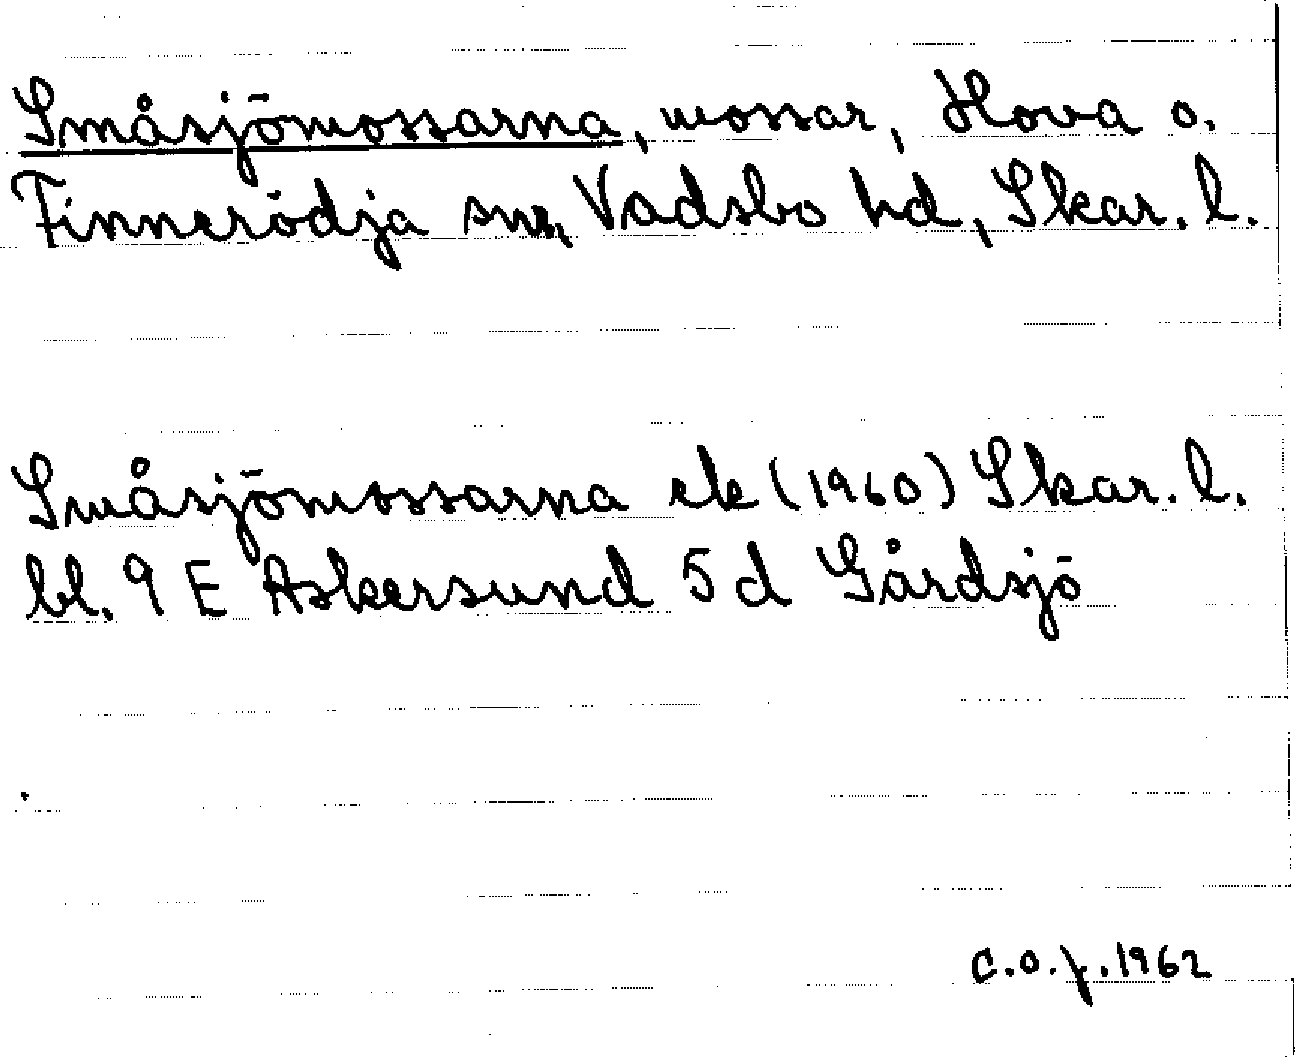 Småsjömossarna, mossar, Hova o.
Finnerödja snr, Vadsbo hd, Skar. l.
Småsjömossarna ek (1960) Skar. l.
bl. 9 E Askersund 5 d Gårdsjö
C.O.f. 1962